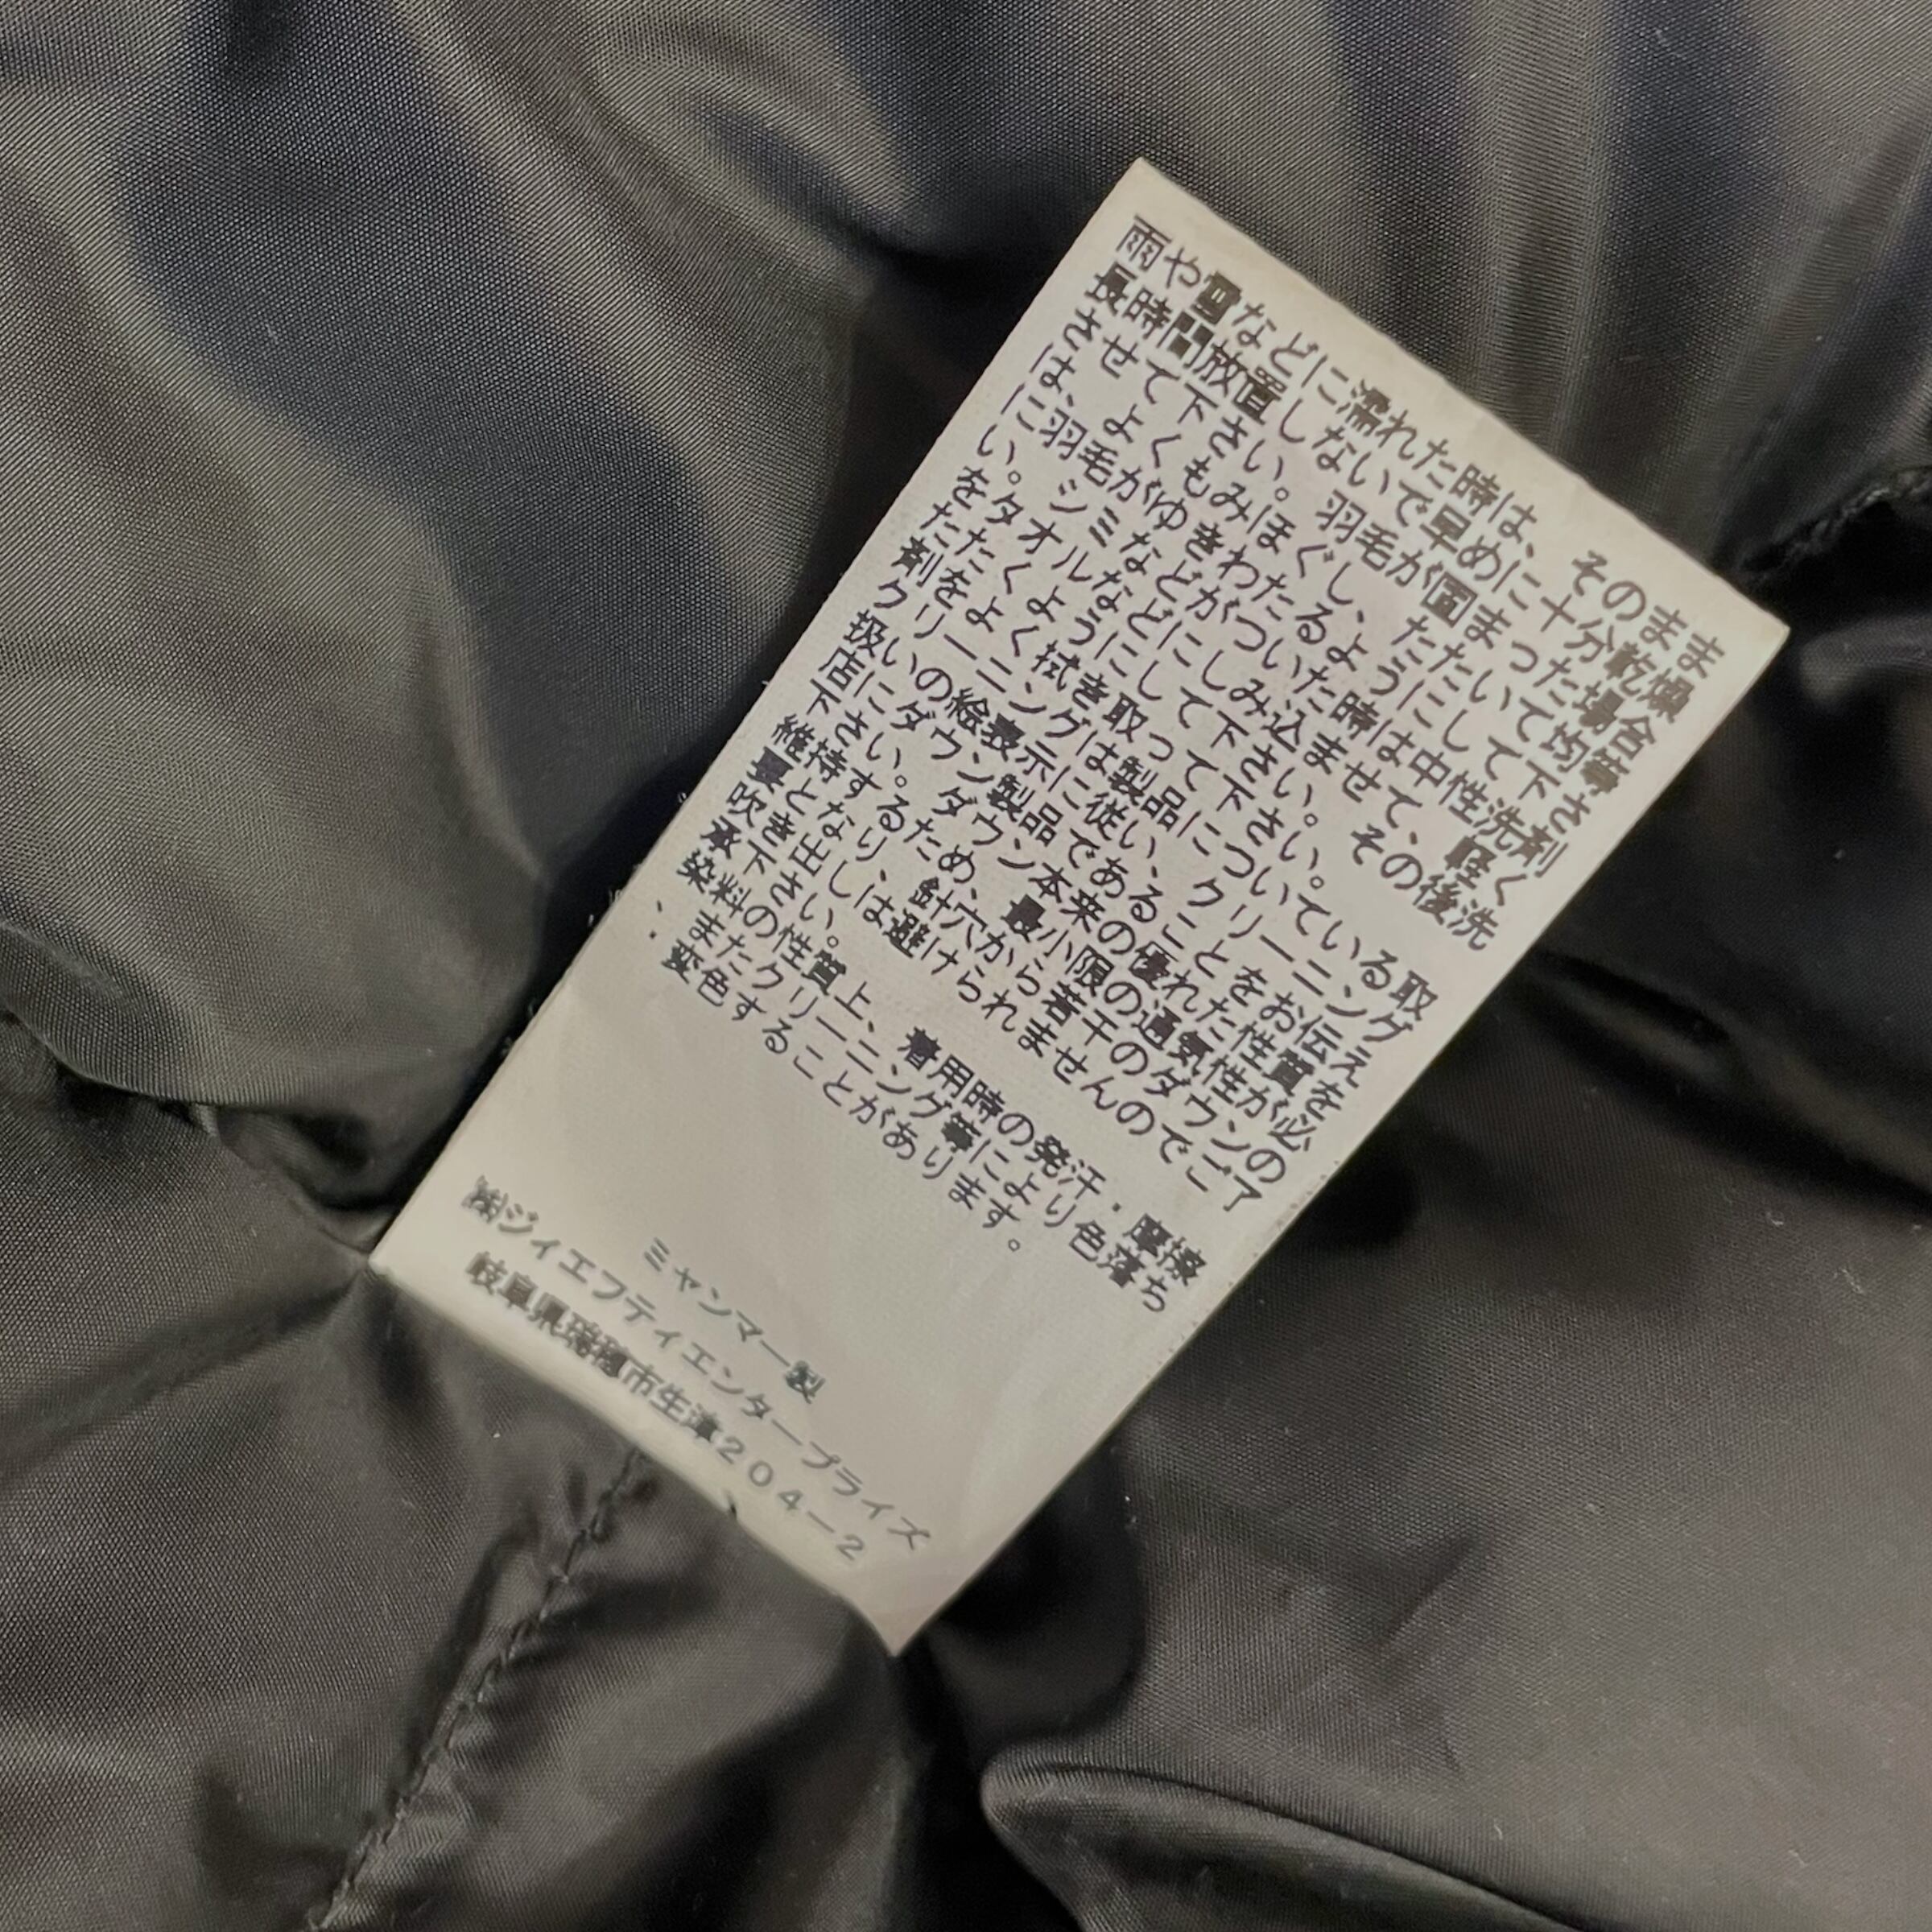 雨や雪などに濡れた時は、そのまま
長時間放置しないで早めに十分乾燥
させて下さい。羽毛が固まった場合等
は、よくもみほぐし、たたいて均等
に羽毛がゆきわたるようにして下さ
い。シミなどがついた時は中性洗剤
をタオルなどにしみ込ませて、軽く
たたくようにして下さい。その後洗
剤をよく拭き取って下さい。
クリーニングは製品についている取
扱いの絵表示に従い、クリーニング
店にダウン製品であることをお伝え
下さい。ダウン本来の優れた性質を
維持するため、最小限の通気性が必
要となり、針穴から若干のダウンの
吹き出しは避けられませんのでご了
承下さい。
染料の性質上、着用時の発汗・摩擦
、またクリーニング等により色落ち
・変色することがあります。
ミャンマー製
㈱ジィエフティエンタープライズ
岐阜県瑞穂市生津204-2